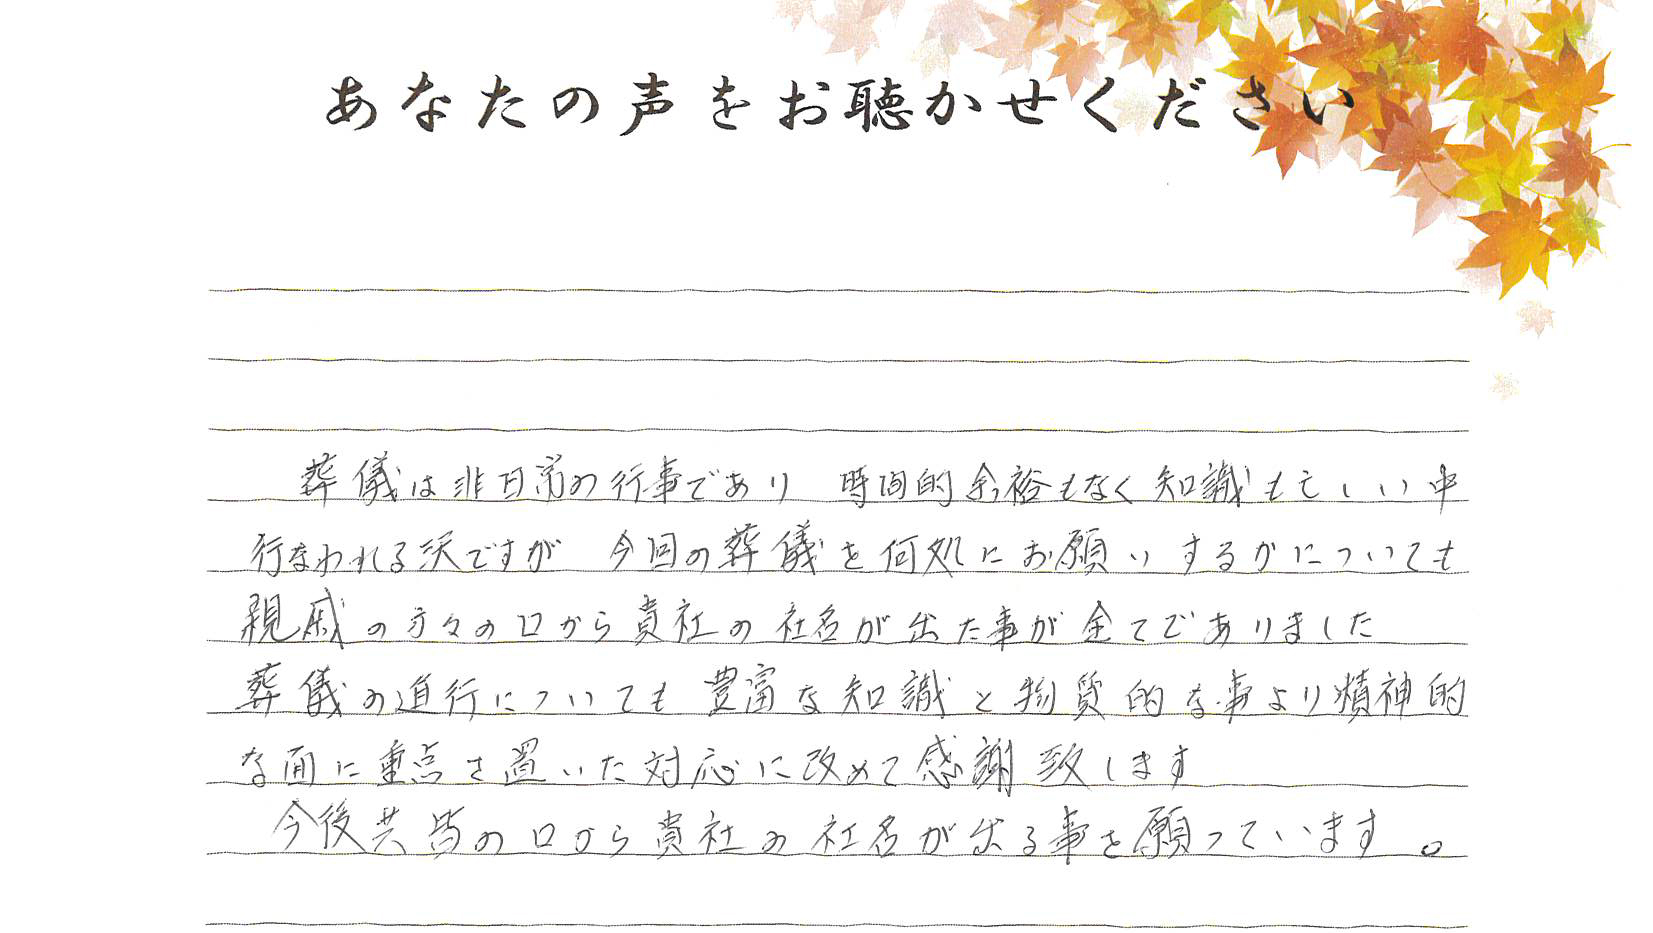 あなたの声をお聴かせください
葬儀は非日常の行事であり 時間的余裕もなく知識も乏しい中
行なわれる訳ですが 今回の葬儀を何処にお願いするかについても
親戚の方々の口から貴社の社名が出た事が全てでありました
葬儀の進行についても 豊富な知識と物質的な事より精神的
な面に重点を置いた対応に改めて感謝致します
今後共皆の口から貴社の社名が出る事を願っています。